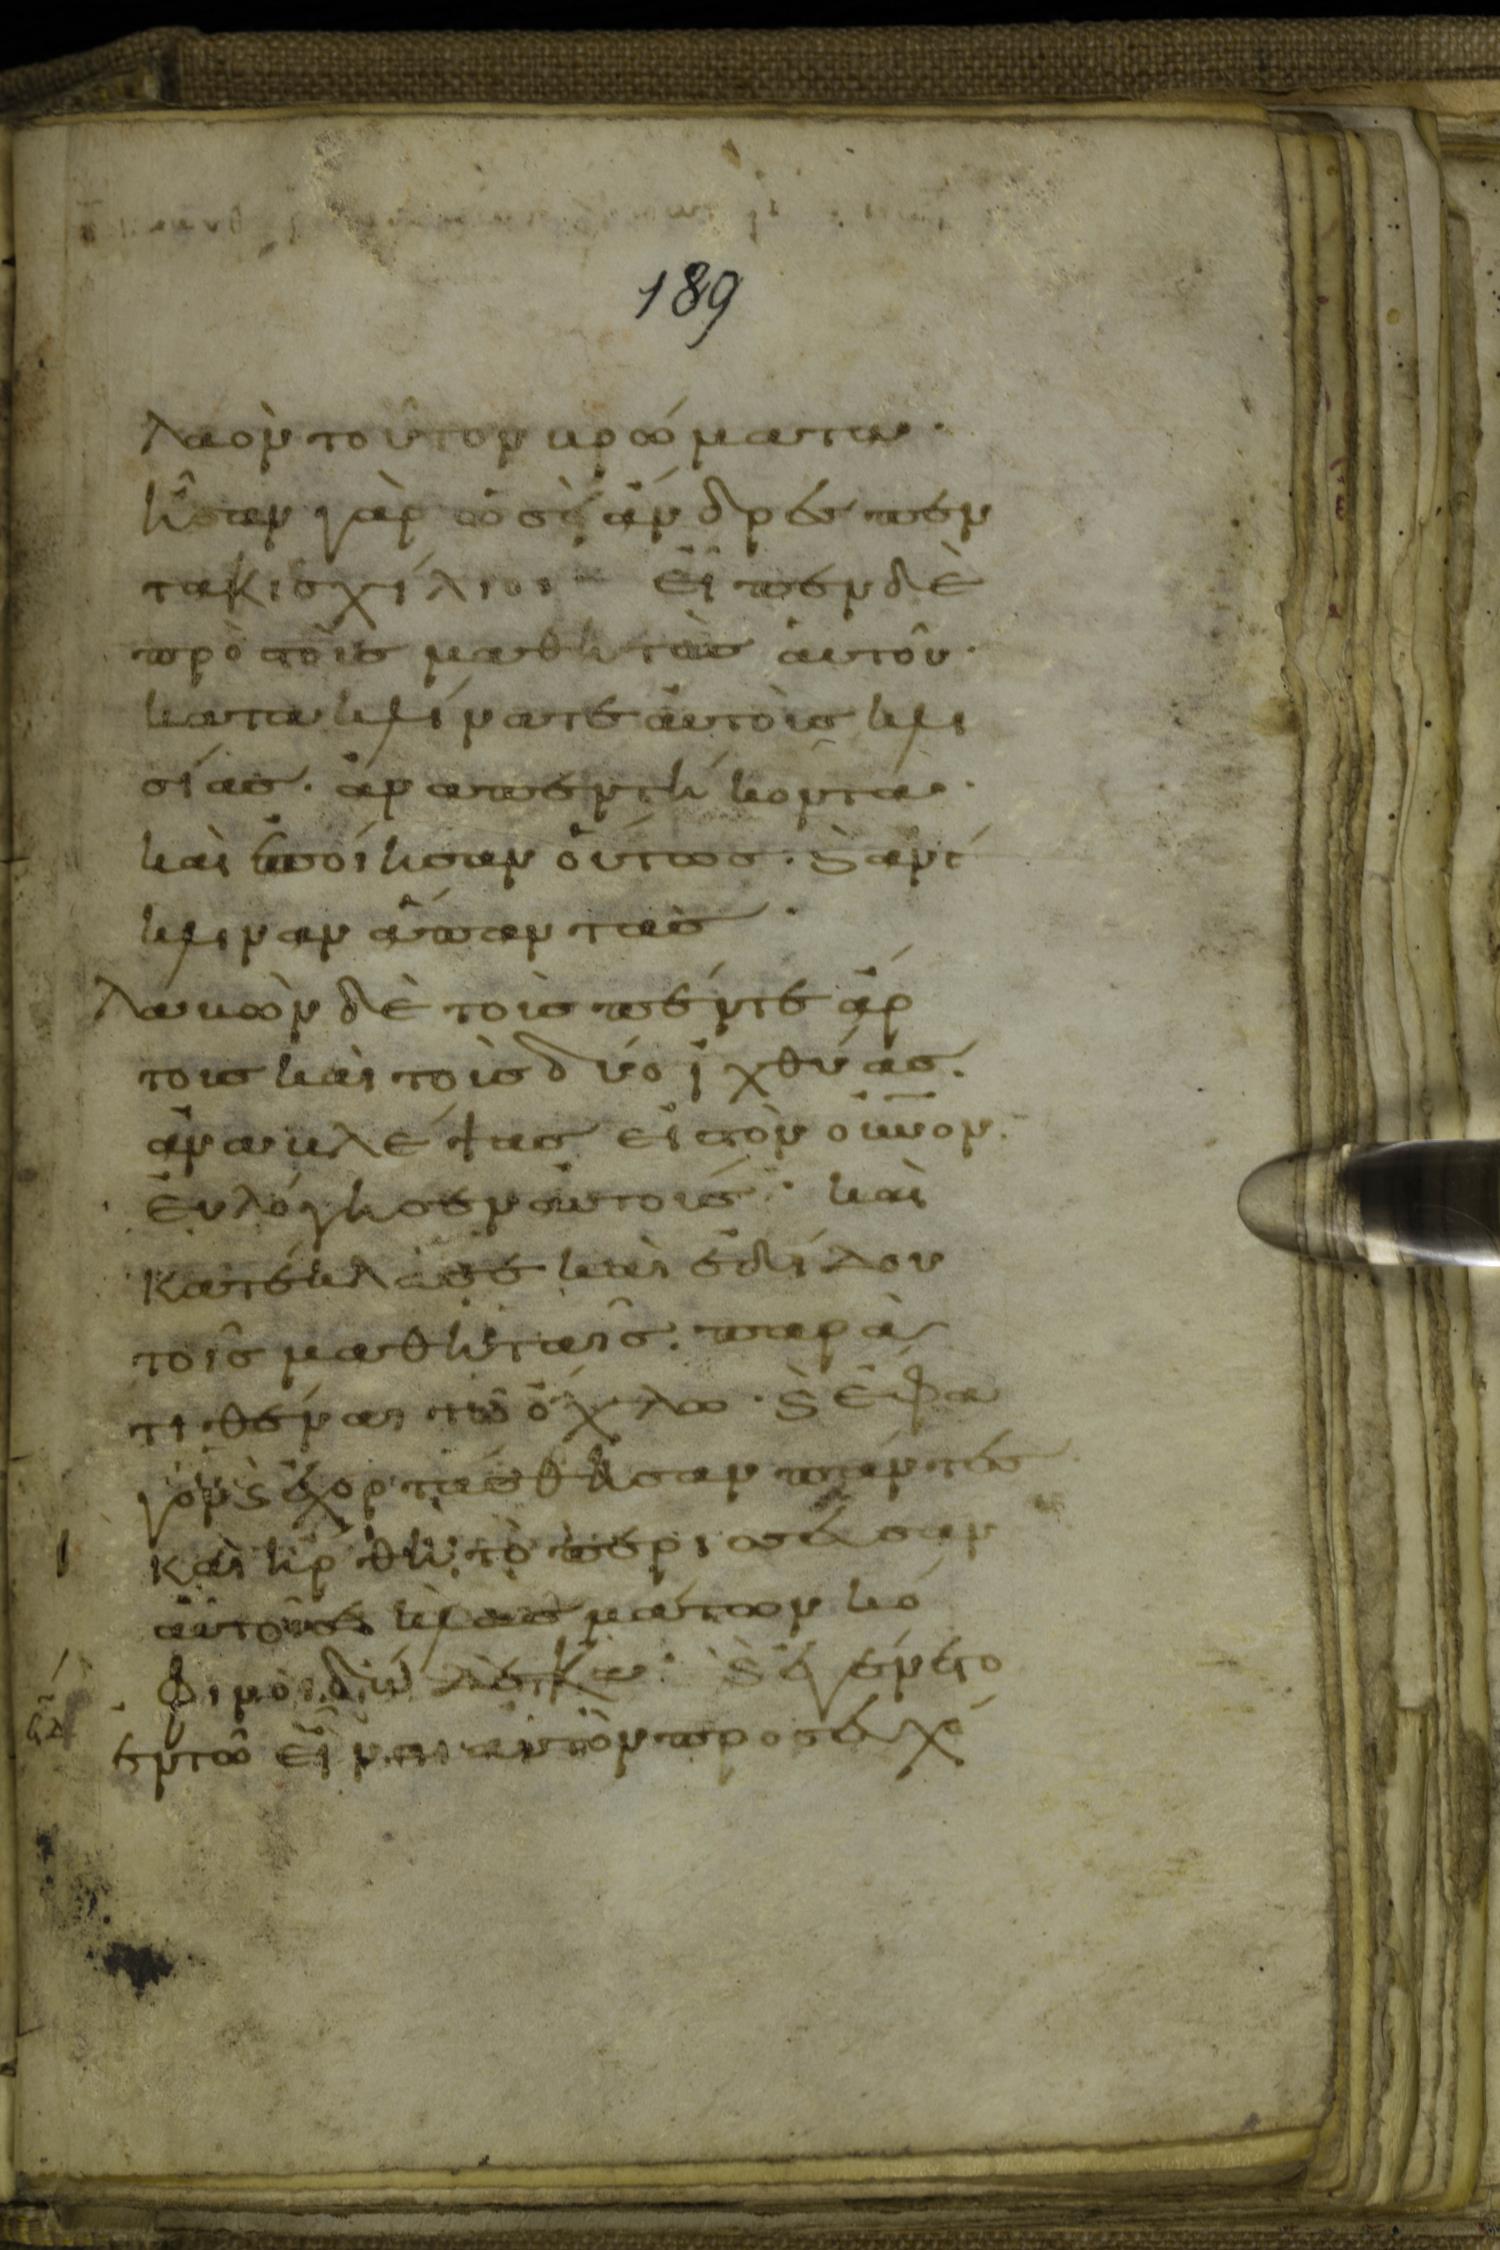 189
λαὸν τοῦτον βρώματα·
ἦσαν γὰρ ὡσεὶ ἄνδρες πεν
τακισχίλιοι· εἶπεν δὲ
πρὸς τοὺς μαθητὰς αὐτοῦ·
κατακλίνατε αὐτοὺς κλι
σίας· ἀνὰ πεντήκοντα·
καὶ ἐποίησαν οὕτως· ϗ ἀνέ
κλιναν ἅπαντας·
λαβὼν δὲ τοὺς πέντε ἄρ
τους καὶ τοὺς δύο ἰχθύας·
ἀναβλέψας εἰς τὸν οὐ̅νον·
εὐλόγησεν αὐτούς· καὶ
κατέκλασε καὶ ἐδίδου
τοῖς μαθηταῖς· παρα
τιθέναι τῶ ὄχλω· ϗ ἔφα
γον ϗ ἐχορτάσθησαν πάντες
καὶ ἤρθη τὸ περισσεῦσαν
αὐτοῖς κλασμάτων κό
φινοι δώδεκα· ϗ ἐγένετο
ἐν τῶ εἶναι αὐτὸν προσευχό